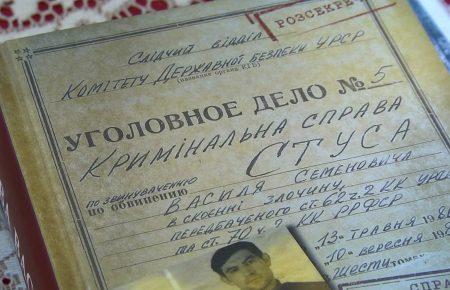 РОЗСЕКРЕ
СЛІДЧИЙ ВІДДІЛ
КОМІТЕТУ ДЕРЖАВНОЇ БЕЗПЕКИ УРСР
(название органа КГБ)
УГОЛОВНОЕ ДЕЛО № 5
КРИМІНАЛЬНА СПРАВА
СТУСА
ПО ЗВИНУВАЧЕННЮ
по обвинению
ВАСИЛЯ СЕМЕНОВИЧА
В СКОЄННІ ЗЛОЧИНУ,
ПЕРЕДБАЧЕНОГО СТ. 62 Ч. 2 КК УРСР
ТА СТ. 70 Ч. 2 КК РРФСР
"13" ТРАВНЯ 198
"10" ВЕРЕСНЯ 198
ШЕСТИ
СПРАВ